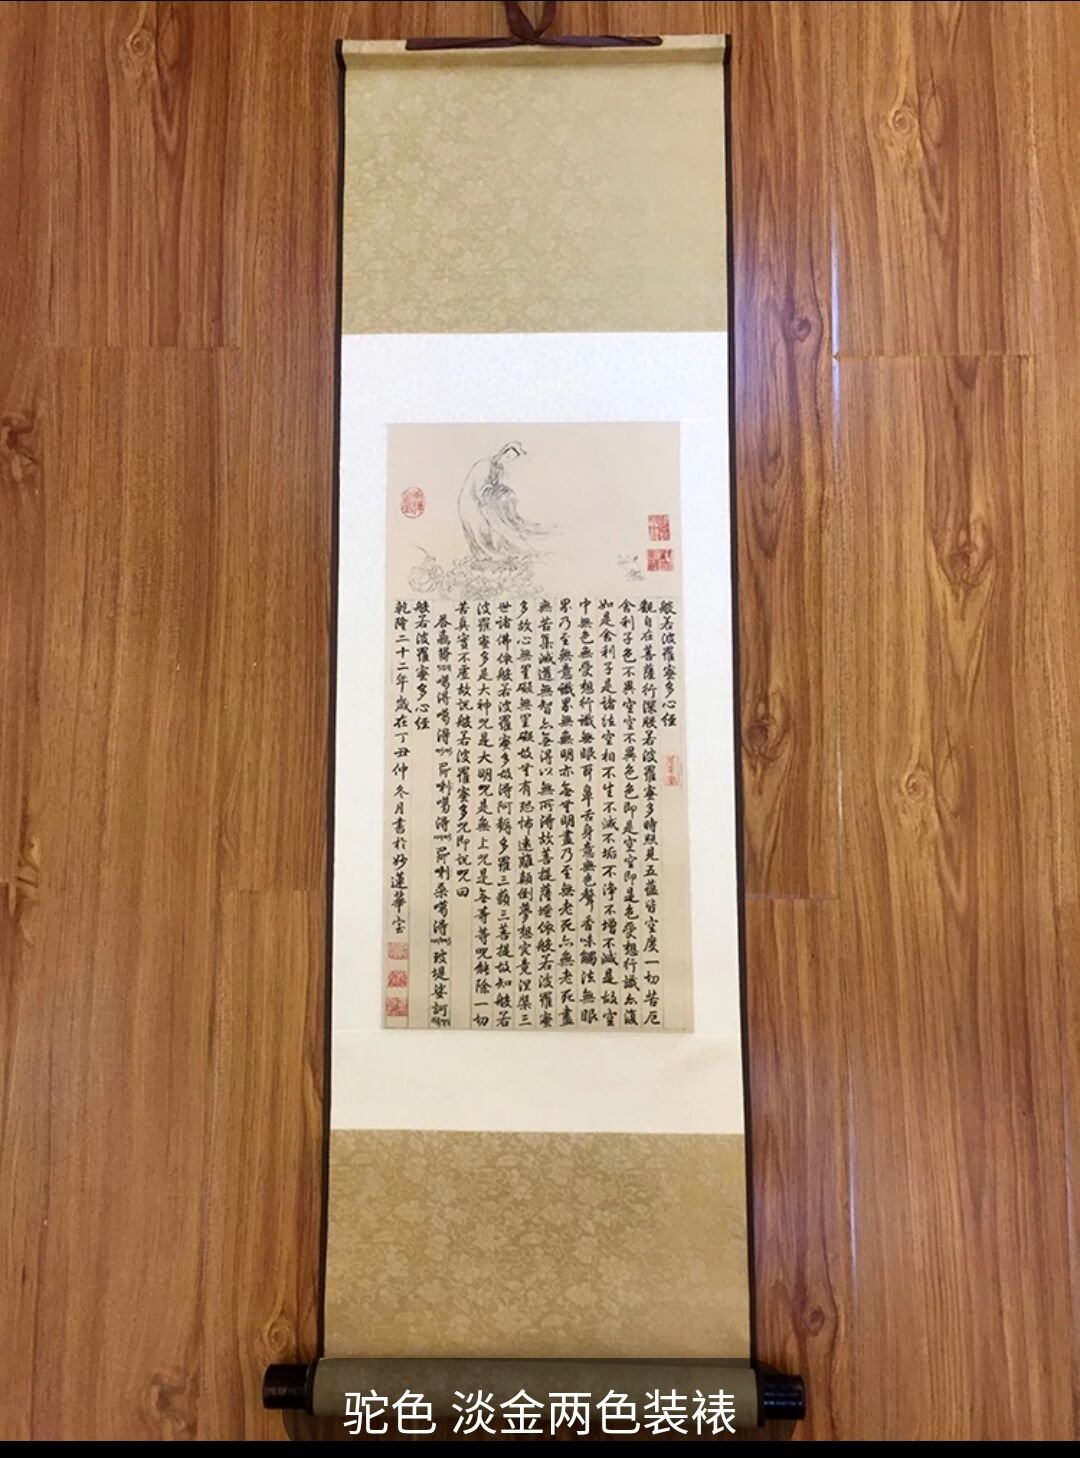 般若波羅蜜多心经
觀自在菩薩行深般若波羅蜜多時照見五蘊皆空度一切苦厄
舍利子色不異空空不異色色即是空空即是色受想行識亦復
如是舍利子是諸法空相不生不滅不垢不淨不增不減是故空
中無色無受想行識無眼耳鼻舌身意無色聲香味觸法無眼
界乃至無意識界無無明亦無無明盡乃至無老死亦無老死盡
無苦集滅道無智亦無得以無所得故菩提薩埵依般若波羅蜜
多故心無罣礙無罣礙故無有恐怖遠離顛倒夢想究竟涅槃三
世諸佛依般若波羅蜜多故得阿耨多羅三藐三菩提故知般若
波羅蜜多是大神咒是大明咒是無上咒是無等等咒能除一切
苦真實不虛故說般若波羅蜜多咒即說咒曰
揭得揭得 揭得 揭得 菩提娑訶
般若波羅蜜多心经
乾隆二十二年歲在丁丑仲冬月書於妙蓮華室
驼色 淡金两色装裱